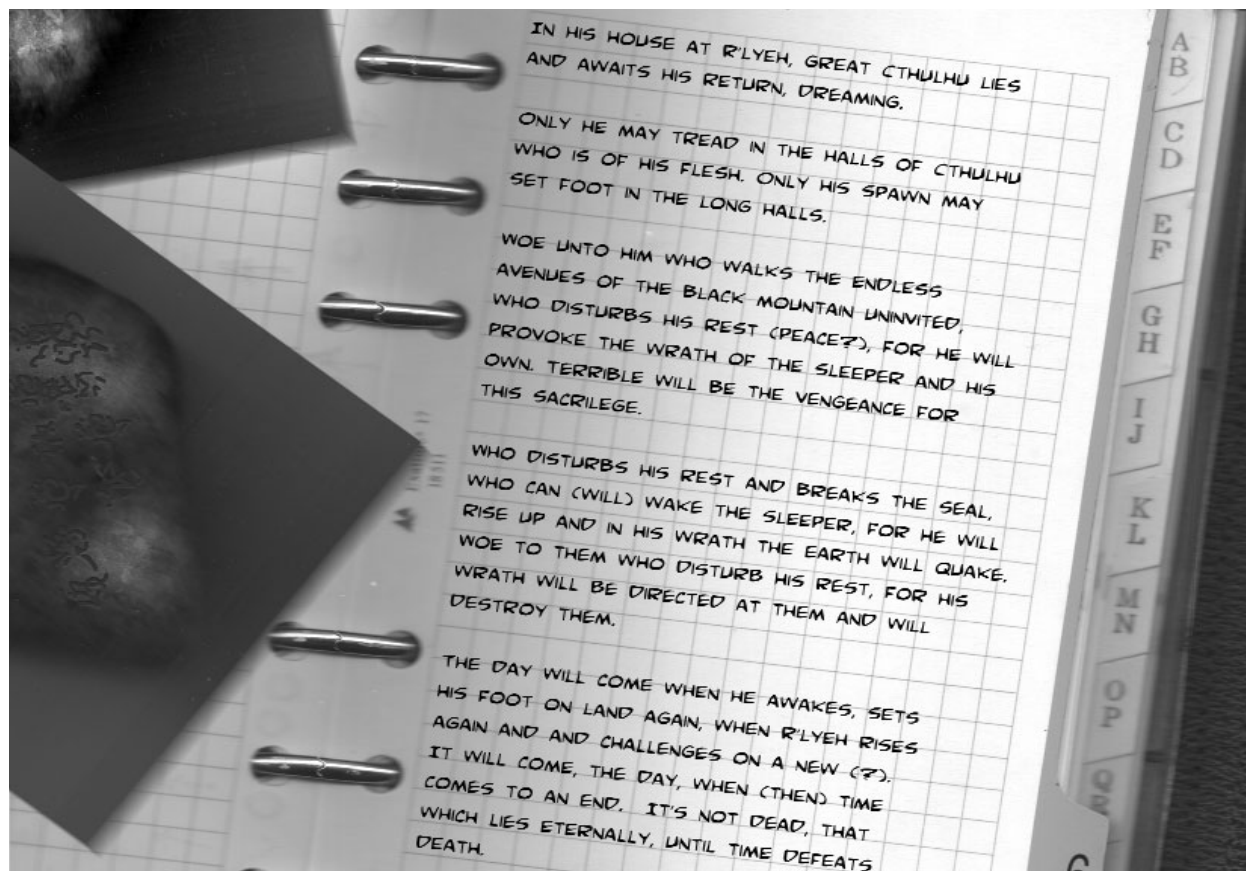 IN HIS HOUSE AT R'LYEH, GREAT CTHULHU LIES
AND AWAITS HIS RETURN, DREAMING.
ONLY HE MAY TREAD IN THE HALLS OF CTHULHU
WHO IS OF HIS FLESH. ONLY HIS SPAWN MAY
SET FOOT IN THE LONG HALLS.
WOE UNTO HIM WHO WALKS THE ENDLESS
AVENUES OF THE BLACK MOUNTAIN UNINVITED,
WHO DISTURBS HIS REST (PEACE?), FOR HE WILL
PROVOKE THE WRATH OF THE SLEEPER AND HIS
OWN. TERRIBLE WILL BE THE VENGEANCE FOR
THIS SACRILEGE.
WHO DISTURBS HIS REST AND BREAKS THE SEAL,
WHO CAN (WILL) WAKE THE SLEEPER, FOR HE WILL
RISE UP AND IN HIS WRATH THE EARTH WILL QUAKE.
WOE TO THEM WHO DISTURB HIS REST, FOR HIS
WRATH WILL BE DIRECTED AT THEM AND WILL
DESTROY THEM.
THE DAY WILL COME WHEN HE AWAKES, SETS
HIS FOOT ON LAND AGAIN, WHEN R'LYEH RISES
AGAIN AND AND CHALLENGES ON A NEW (?).
IT WILL COME, THE DAY, WHEN (THEN) TIME
COMES TO AN END. IT'S NOT DEAD, THAT
WHICH LIES ETERNALLY, UNTIL TIME DEFEATS
DEATH.
A
B
C
D
E
F
G
H
I
J
K
L
M
N
O
P
Q